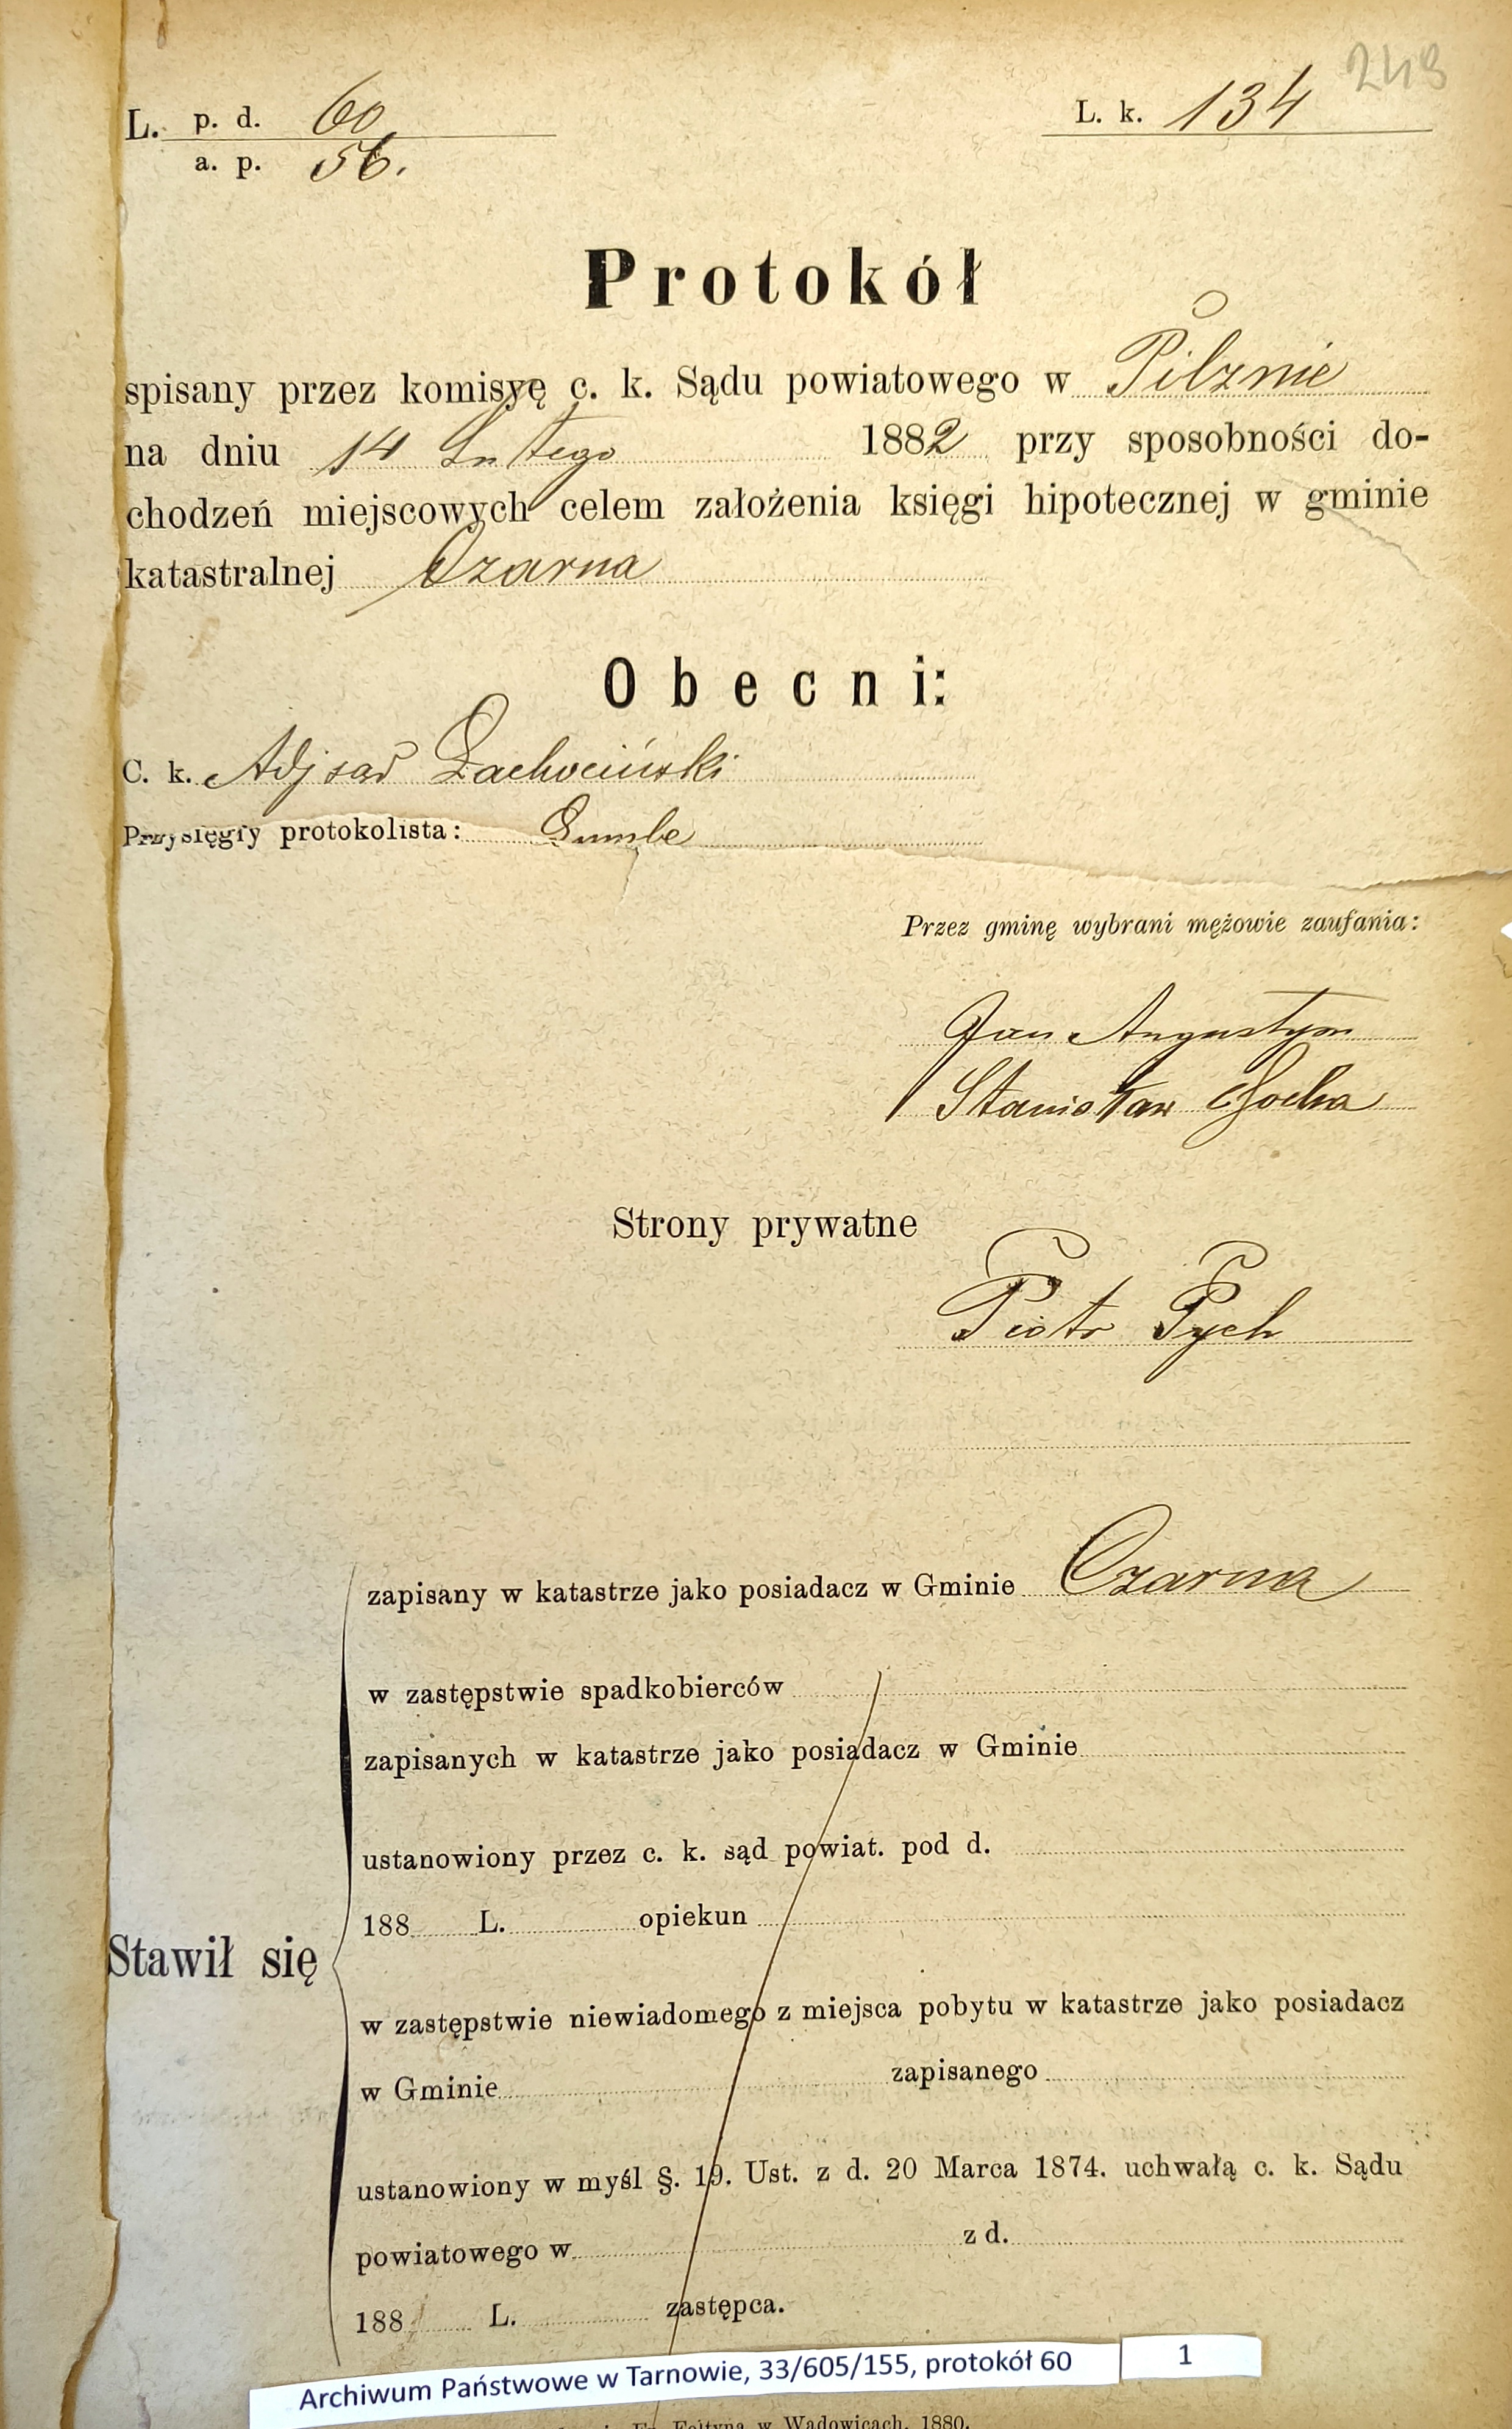 249
L. p. d. 60.
a. p. 56.
L. k. 134
Protokół
spisany przez komisyę c. k. Sądu powiatowego w Pilznie
na dniu 14 Lutego 1882 przy sposobności do-
chodzeń miejscowych celem założenia księgi hipotecznej w gminie
katastralnej Czarna
Obecni:
C. k. Adj sąd
Przysięgły protokolista:
Przez gminę wybrani mężowie zaufania:
Jan Augustyn
Stanisław Socha
Strony prywatne
Piotr Pych
zapisany w katastrze jako posiadacz w Gminie Czarna
w zastępstwie spadkobierców
zapisanych w katastrze jako posiadacz w Gminie
ustanowiony przez c. k. sąd powiat. pod d.
188 L. opiekun
Stawił się
w zastępstwie niewiadomego z miejsca pobytu w katastrze jako posiadacz
w Gminie zapisanego
ustanowiony w myśl §. 19. Ust. z d. 20 Marca 1874. uchwałą c. k. Sądu
powiatowego w z d.
188 L. zastępca.
Archiwum Państwowe w Tarnowie, 33/605/155, protokół 60 1
Fr. Foltyna w Wadowicach, 1880.